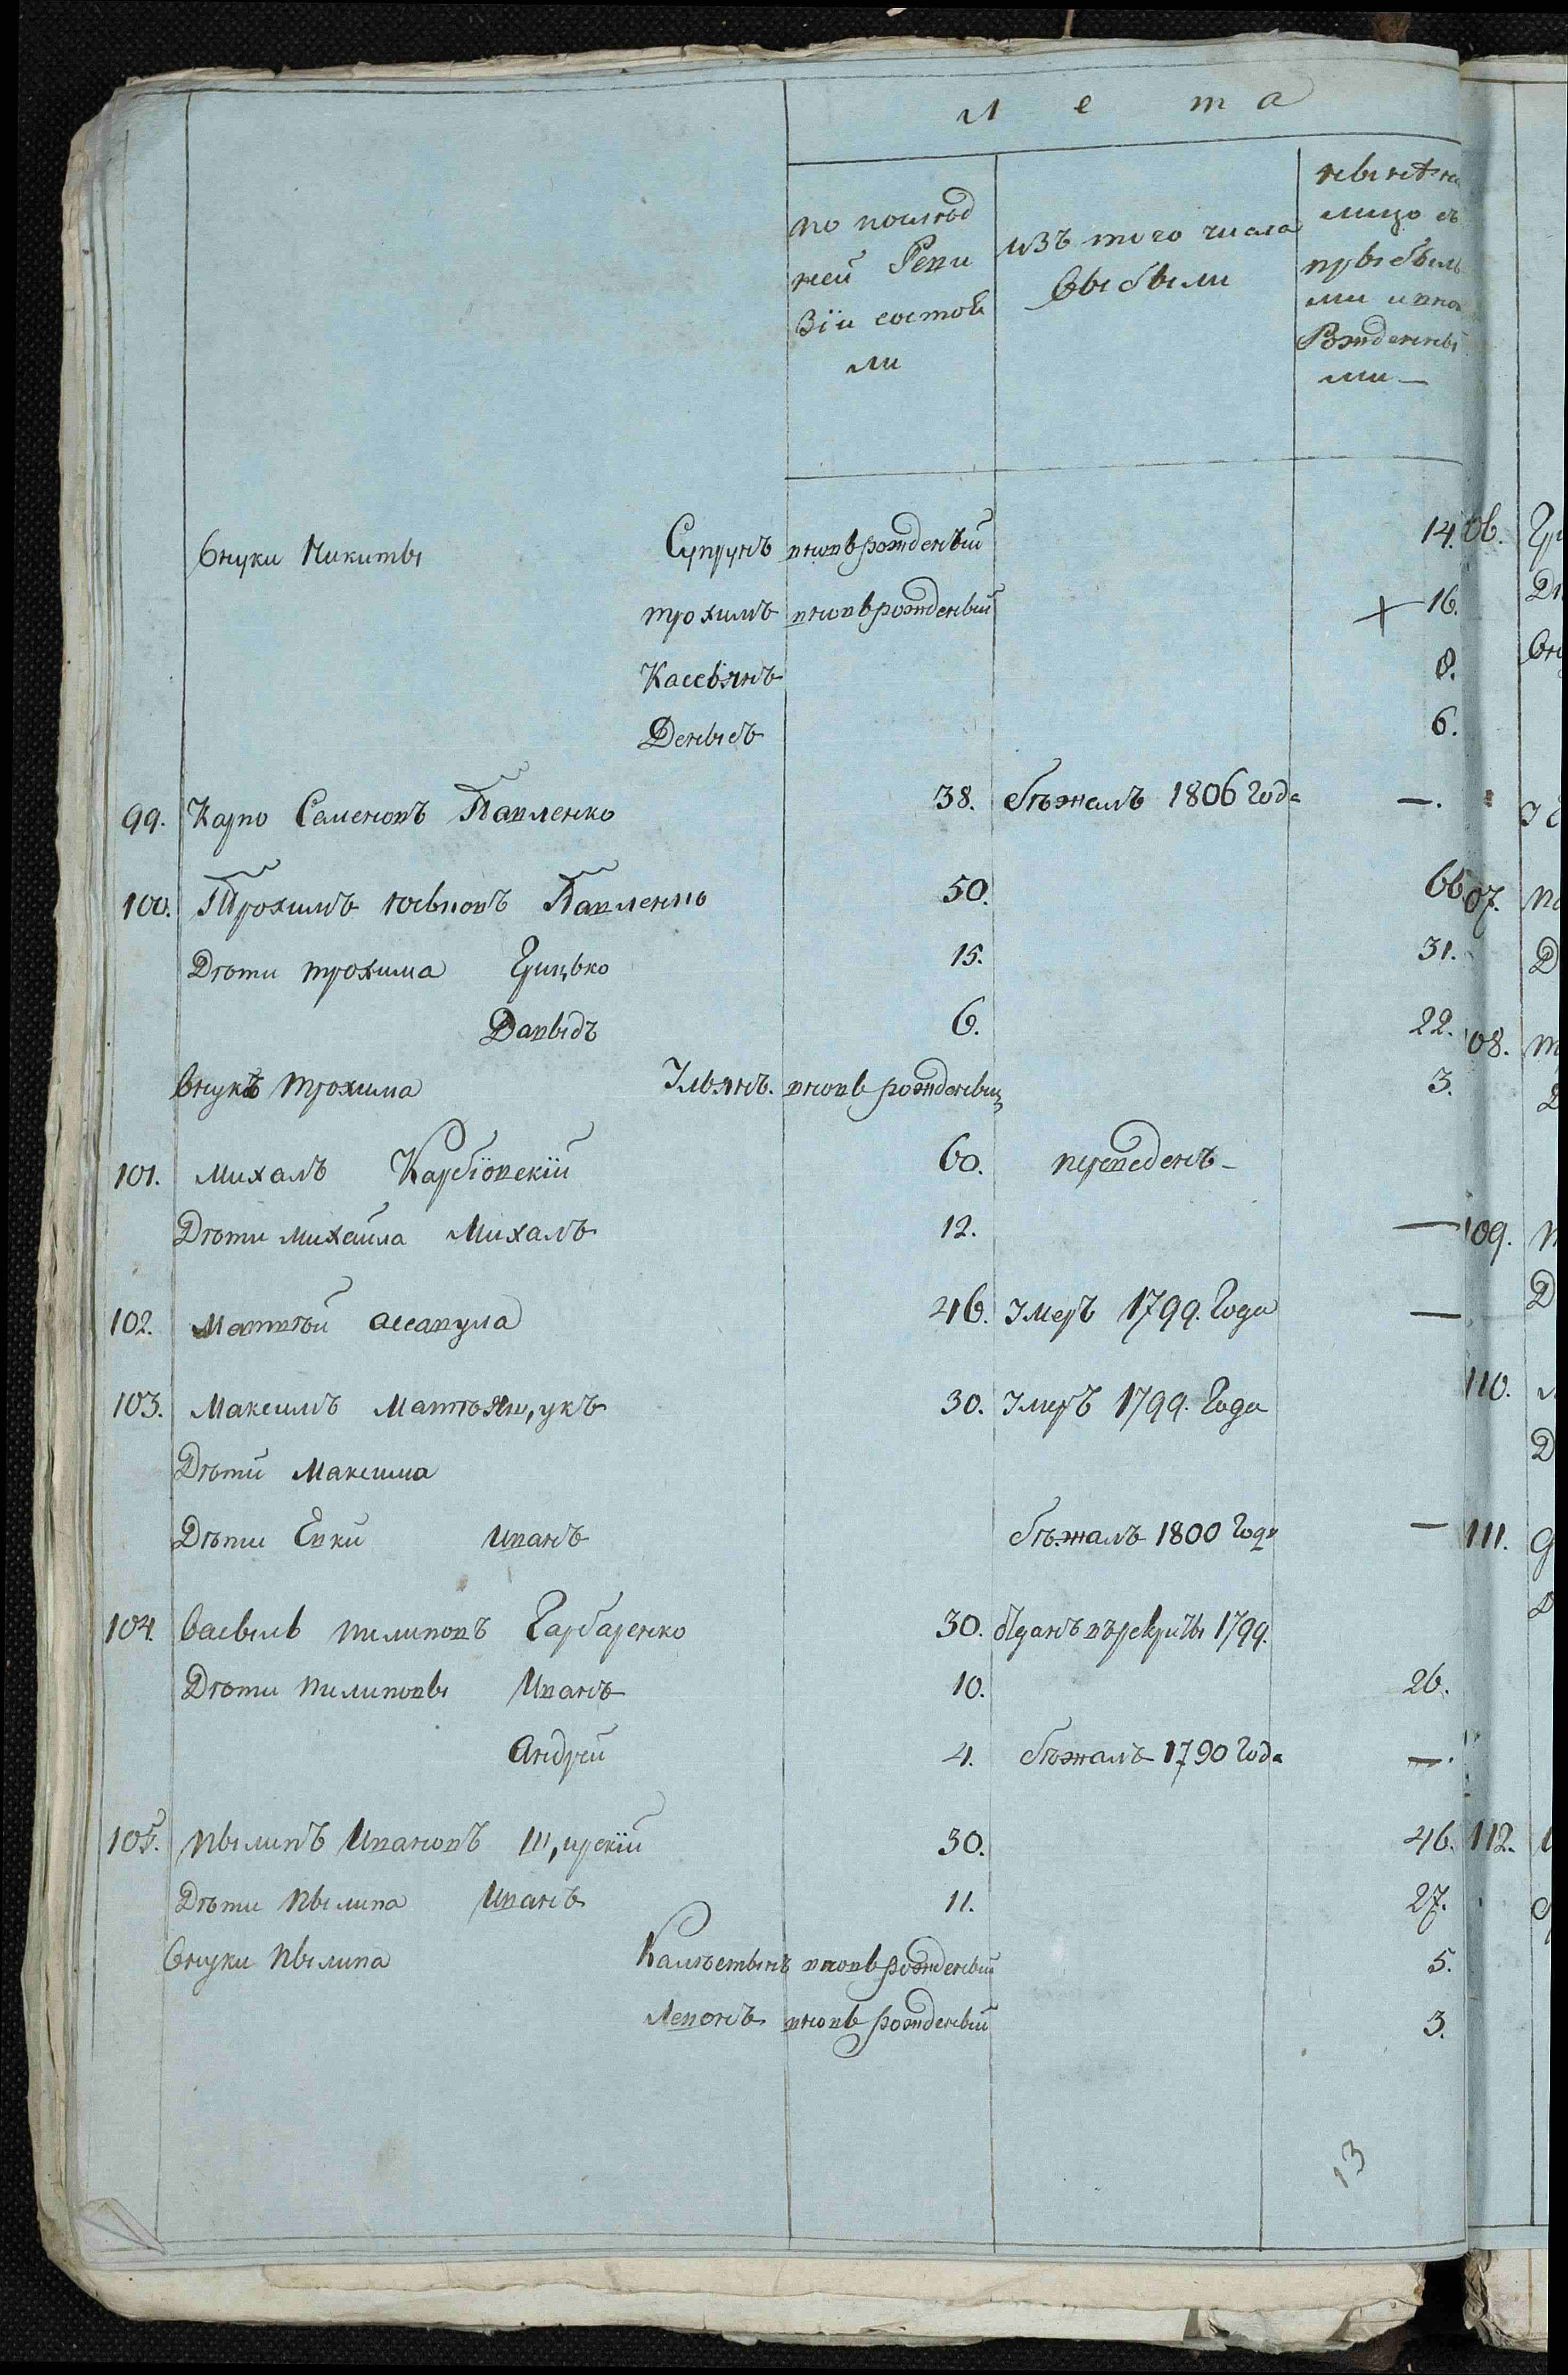 Лета
по послѣд
ней Реви
зїи состоя
ли
изъ того числа
выбыли
нынѣ на
лицо съ
прыбылы
ми и вно
Рожденны
ми
Внуки Никиты Супрунъ вновьрожденый 14.
трохимъ вновьрожденый 16.
Кассьянъ 8.
Денысъ 6.
99. Карпо Семеновъ Павленко 38. бѣжалъ 1806 Года —.
100. Трохимъ Павленко 50. 66
Дѣти трохима Грицько 15. 31.
Давыдъ 6. 22.
Внукъ трохима Ульянъ. вновь рожденый 3.
101. Михалъ Карбïовскїй 60. переведенъ
Дѣти михайла Михалъ 12. —
102. Матвѣй Ассавула 46. Умеръ 1799. Года —
103. Максимъ 30. Умеръ 1799. Года
Дѣти Максима
Дѣти Евки Иванъ бѣжалъ 1800 Года —
104. Васыль пилиповъ Гарбаренко 30. 1799.
Дѣти пилиповы Иванъ 10. 26.
Андрей 4. бѣжалъ 1790 Года —.
105. пылипъ Ивановъ Щирскїй 30. 46.
Дѣти пылипа Иванъ 11. 27.
Внуки пылипа вновьрожденый 5.
Левонъ вновь рожденый 3.
13
07.
08.
109.
110.
111.
112.